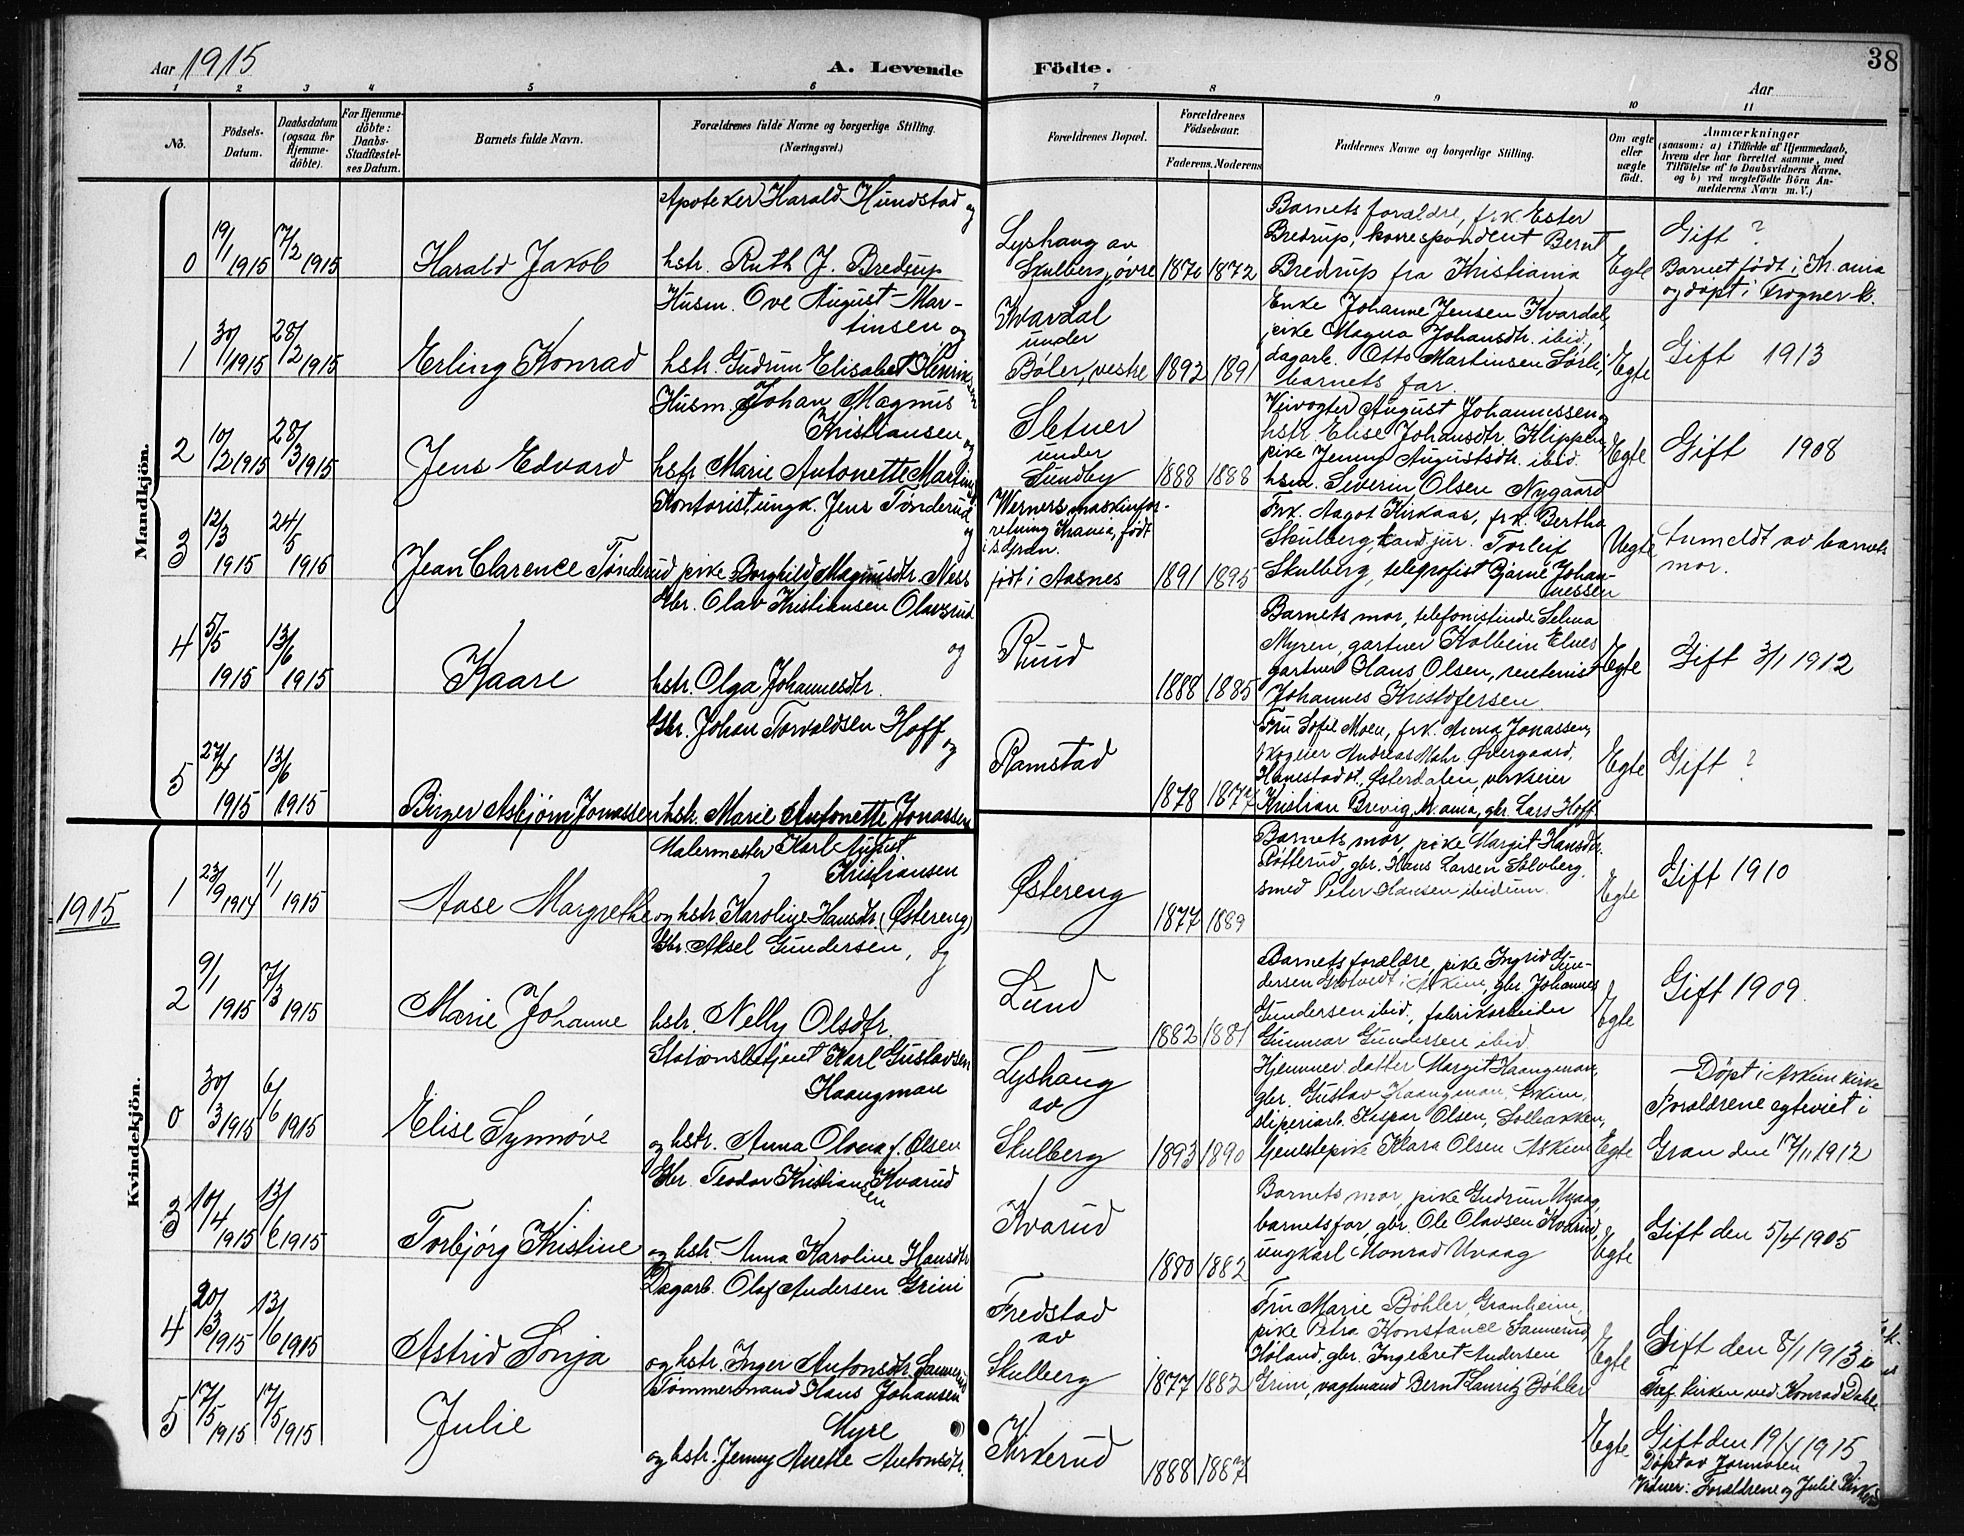 Aar 1915
A. Levende Födte.
38
Aar
1 2 3 4 5 6 7 8 9 10 11
No.
Födsels-Datum.
Daabsdatum (ogsaa for Hjemme-döbte).
For Hjemme-döbte: Daabs-Stadfæstel-ses Datum.
Barnets fulde Navn.
Forældrenes fulde Navne og borgerlige Stilling. (Næringsvei.)
Forældrenes Bopæl.
Forældrenes Födselsaar.
Faderens. Moderens
Faddernes Navne og borgerlige Stilling.
Om ægte eller uægte födt.
Anmærkninger
(saasom: a) i Tilfælde af Hjemmedaab, hvem der har forrettet samme, med Tilföielse af to Daabsvidners Navne, og b) ved uægtefödte Börn An-melderens Navn m. V.)
Mandkjøn.
0 19/1 1915 7/2 1915
Harald Jakob
Apoteker Harald Hundstad og
hstr. Ruth J. Bredrup
Lyshaug av
Skulberg, øvre
1872
Barnets forældre, frk. Ester
Bredrup, korrespondent Bernt
Bredrup fra Kristiania
Egte
Gift ?
Barnet født i Kr.ania
og døpt i Frogner k.
1 30/1 1915 28/2 1915
Erling Konrad
Husm. Ove August Mar-
tinsen og
hstr. Gudrun Elisabet Henriksen
Kvardal
under
Bøler, vestre
1892 1891
Enke Johanne Jensen Kvardal,
pike Magna Johansdtr. ibid.,
dagarb. Otto Martinsen Sørli,
barnets far.
Egte
Gift 1913
2 10/2 1915 28/3 1915
Jens Edvard
Husm. Johan Magnus
Kristiansen og
hstr. Marie Antonette Martins
Sletner
under
Sundby
1888 1888
Veivogter August Johannessen og
hstr. Elise Johansdtr. Klippen,
pike Jenny Augustsdtr. ibid.
hsm. Severin Olsen Nygaard
Egte
Gift 1908
3 12/3 1915 24/5 1915
Jean Clarence Tønderud
Kontorist, ungk. Jens Tønderud
og
pike Borghild Magnusdtr. Ness
Werners maskinfor-
retning Krania, født
i sdpræn.
født i Aasnes
1891 1895
Frk. Aagot Kirkaas, frk. Bertha
Skulberg, cand. jur. Torleif
Skulberg, telegrafist Bjarne Johan-
nessen
Uegte
Anmeldt av barnets
mor.
4 5/5 1915 13/6 1915
Kaare
Gbr. Olav Kristiansen Olavsrud
og
hstr. Olga Johannesdtr.
Ruud
1888 1885
Barnets mor, telefonistinde Selma
Myren, gartner Kolbein Elnes
gartner Hans Olsen, rentenist
Johannes Kristofersen.
Egte
Gift 3/1 1912
5 27/4 1915 13/6 1915
Birger Asbjørn Jonassen
Gbr. Johan Torvaldsen Hoff
og
hstr. Marie Antonette Jonassen
Ramstad
1878 1877
Fru Sofie Moen, frk. Anna Jonassen,
Andreas Mohr Øvergaard,
Hanestad st., Østerdalen, verkeier
Kristian Brevig, Kr.ania, gbr. Lars Hoff
Egte
Gift ?
1915
Kvindekjön.
1 23/9 1914 1/1 1915
Aase Margrethe
Malermester Karl August
Kristiansen
og hstr. Karoline Hansdtr. (Østereng)
Østereng
1877 1889
Barnets mor, pike Margit Hansdtr.
Røtterud, gbr. Hans Larsen Solberg,
smed Peter Hansen ibidem.
Egte
Gift 1910
2 9/1 1915 7/3 1915
Marie Johanne
Gbr. Aksel Gundersen, og
hstr. Nelly Olsdtr.
Lund
1882 1881
Barnets forældre, pike Ingrid Gun-
dersen Grøtvedt i Askim, gbr. Johannes
Gundersen ibid., fabrikarbeider
Gunnar Gundersen ibid.
Egte
Gift 1909.
0 30/3 1915 6/6 1915
Elise Synnøve
Stationsbetjent Karl Gustavsen
Haangman
og hstr. Anna Olava f. Olsen
Lyshaug
av
Skulberg
1893 1890
Hjemmev. datter Margit Haangman,
gbr. Gustav Haangman, Askim,
sliperiarb. Kaspar Olsen, Solbakken,
tjenestepike Klara Olsen Askim
Egte
Døpt i Askim kirke
Forældrene egteviet i
Gran den 17/11 1912
3 10/4 1915 13/6 1915
Torbjørg Kristine
Gbr. Teodor Kristiansen Kvarud
og hstr. Anna Karoline Hansdtr.
Kvarud
1880 1882
Barnets mor, pike Gudrun Uvaag,
barnets far, gbr. Ole Olavsen Kvarud,
ungkarl Konrad Uvaag
Egte
Gift den 5/4 1905
4 20/3 1915 13/6 1915
Astrid Sonja
Dagarb. Olaf Andersen Grini
og hstr. Inger Antonsdtr. Sannerud
Fredstad
av
Skulberg
1877 1882
Fru Marie Bøhler, Granheim,
pike Petra Konstance Sannerud,
Høland, gbr. Ingebret Andersen
Grini, vagtmand Bernt Lauritz Bøhler
Egte
Gift den 8/1 1913 i
Tref. kirken ved Konrad Dahl
5 17/5 1915 17/5 1915
Julie
Tømmermand Hans Johansen
Myre
og hstr. Jenny Anette Antonsdtr.
Kirkerud
1888 1887
Egte
Gift den 19/4 1915
Døpt av Jormoren
Vidner: Forældrene og Julie Kirkerud